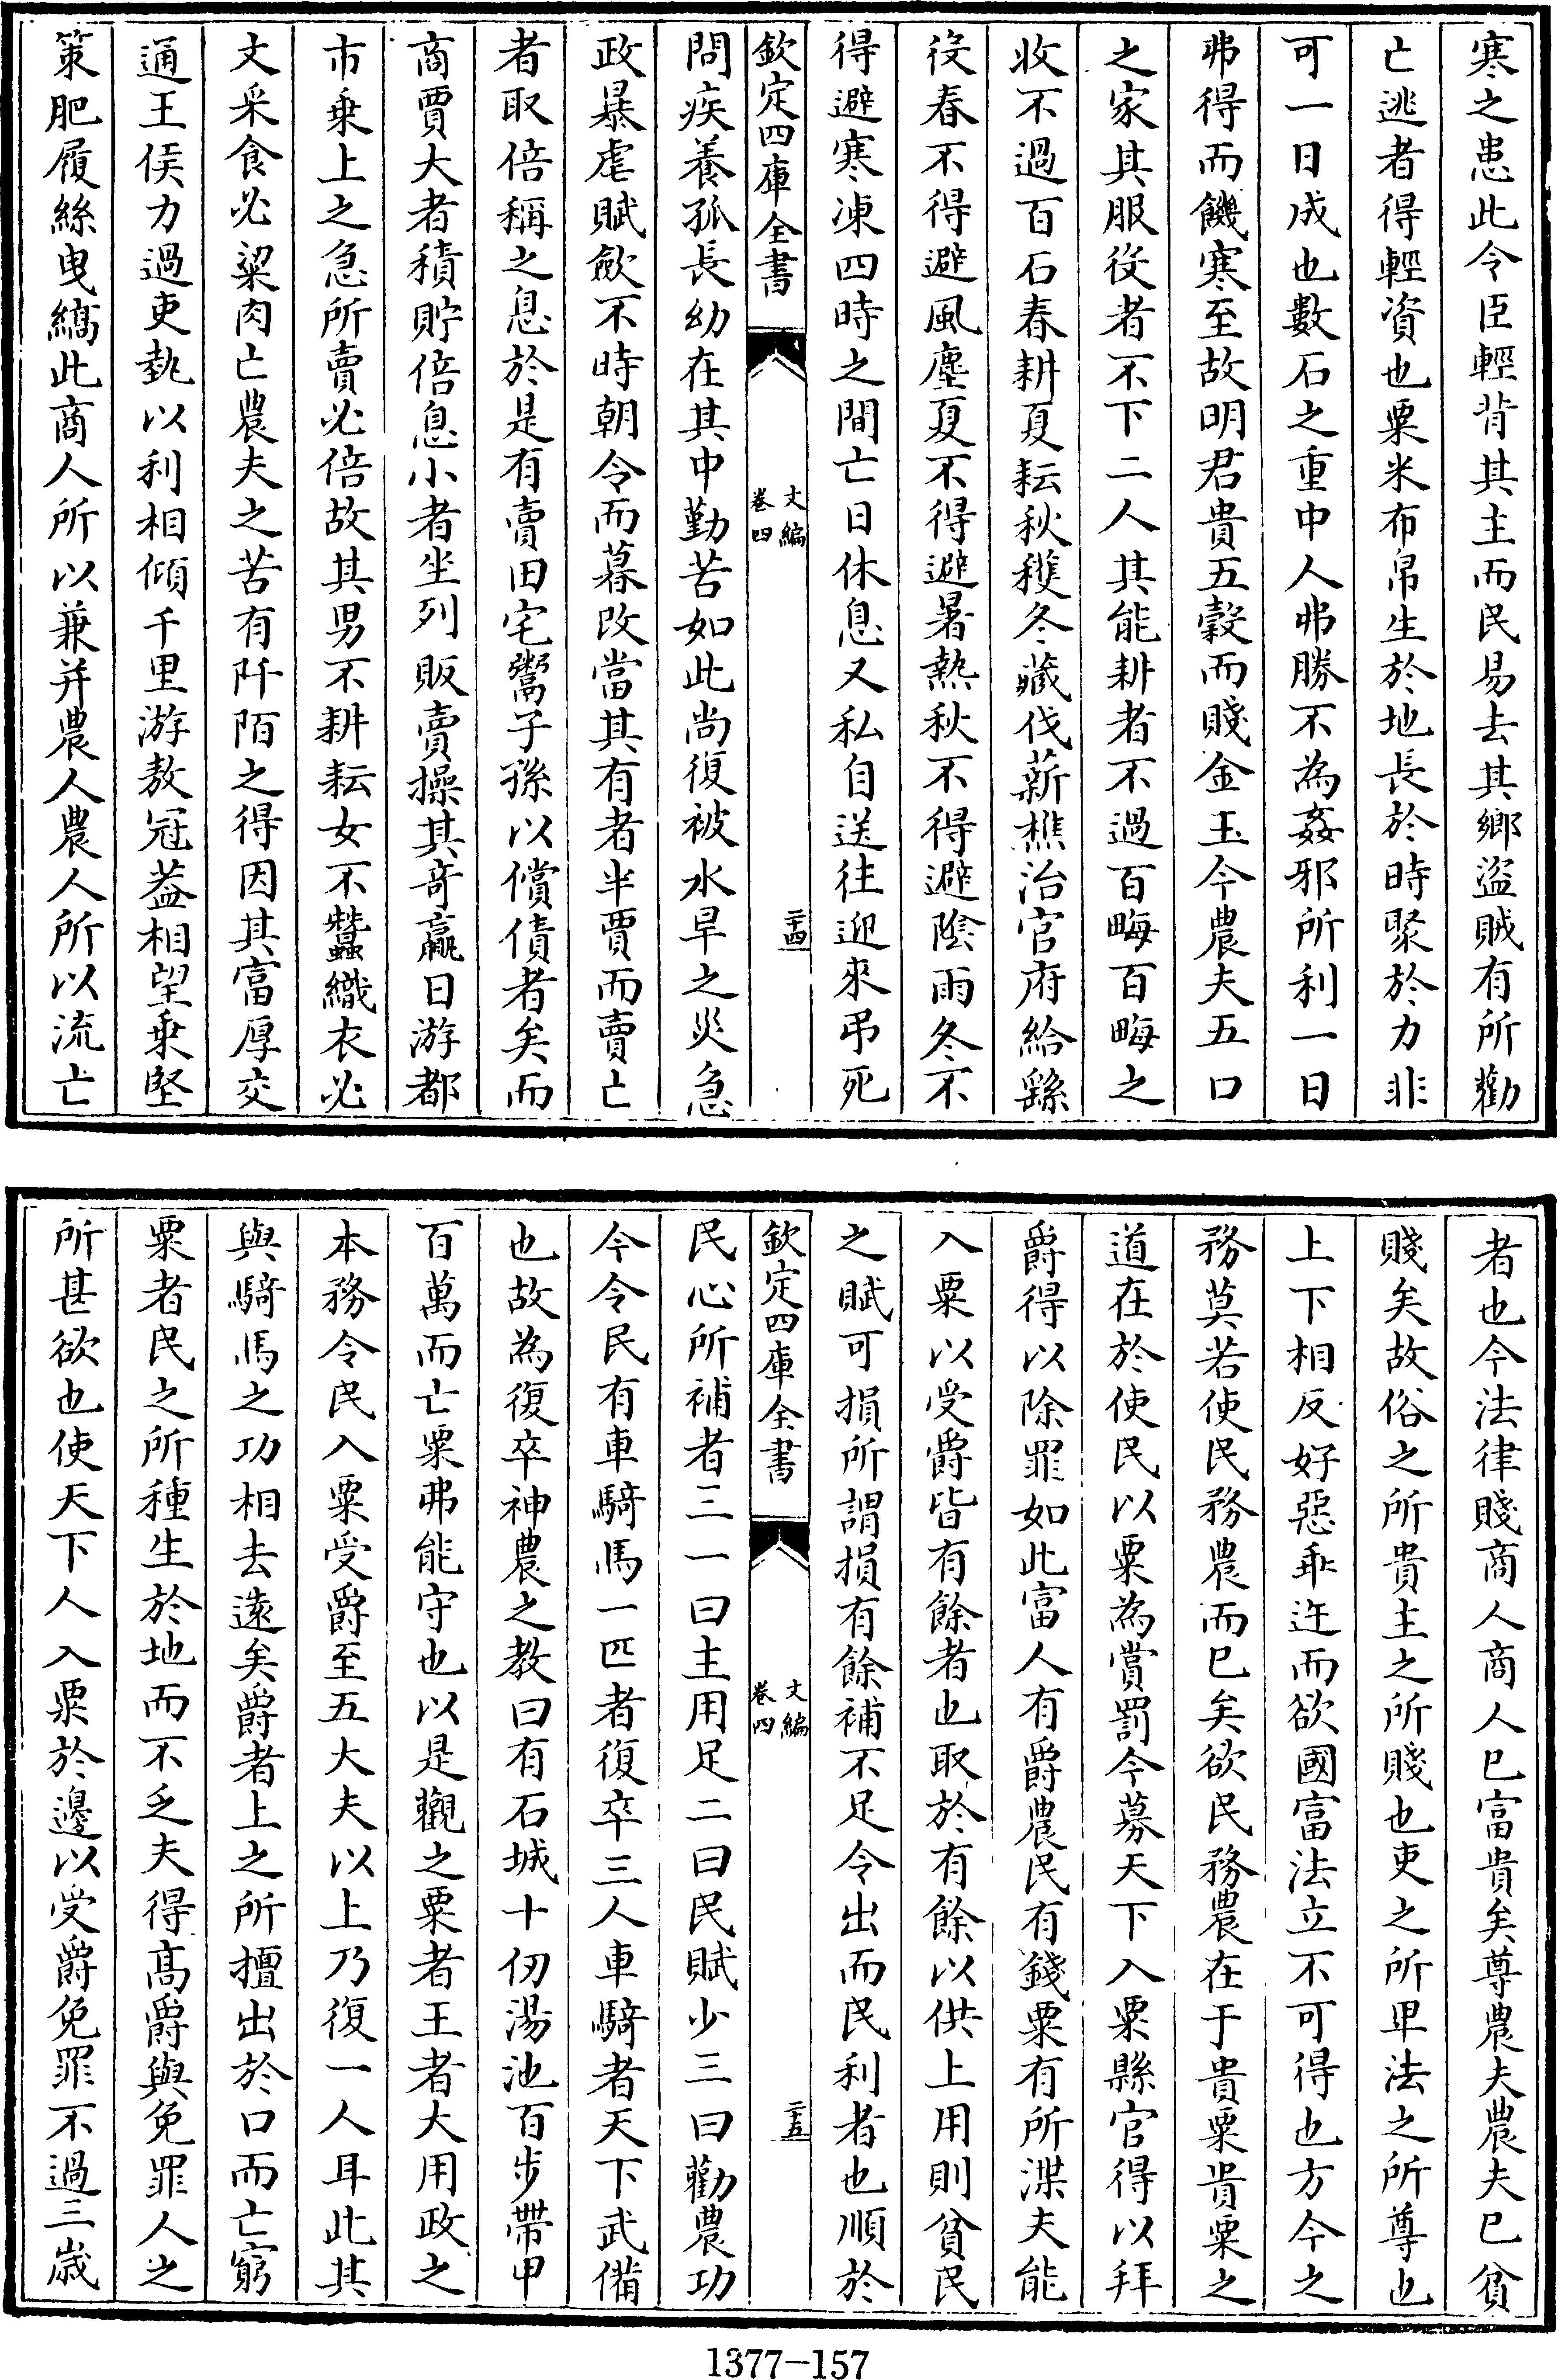 寒之患此令臣輕背其主而民易去其鄉盜賊有所勸
亡逃者得輕資也粟米布帛生於地長於時聚於力非
可一日成也數石之重中人弗勝不為姦邪所利一日
弗得而饑寒至故明君貴五穀而賤金玉今農夫五口
之家其服役者不下二人其能耕者不過百畮百畮之
收不過百石春耕夏耘秋穫冬藏伐薪樵治官府給繇
役春不得避風塵夏不得避暑熱秋不得避陰雨冬不
得避寒凍四時之間亡日休息又私自送往迎來弔死
欽定四庫全書
文編
卷四
二十四
問疾養孤長幼在其中勤苦如此尚復被水旱之災急
政暴虐賦斂不時朝令而暮改當其有者半賈而賣亡
者取倍稱之息於是有賣田宅鬻子孫以償債者矣而
商賈大者積貯倍息小者坐列販賣操其竒贏日游都
市乗上之急所賣必倍故其男不耕耘女不蠶織衣必
文采食必粱肉亡農夫之苦有阡陌之得因其富厚交
通王侯力過吏埶以利相傾千里游敖冠葢相望乗堅
策肥履絲曳縞此商人所以兼并農人農人所以流亡
者也今法律賤商人商人已富貴矣尊農夫農夫已貧
賤矣故俗之所貴主之所賤也吏之所卑法之所尊也
上下相反好惡乖迕而欲國富法立不可得也方今之
務莫若使民務農而已矣欲民務農在于貴粟貴粟之
道在於使民以粟為賞罰今募天下入粟縣官得以拜
爵得以除罪如此富人有爵農民有錢粟有所渫夫能
入粟以受爵皆有餘者也取於有餘以供上用則貧民
之賦可損所謂損有餘補不足令出而民利者也順於
欽定四庫全書
文編
卷四
二十五
民心所補者三一曰主用足二曰民賦少三曰勸農功
今令民有車騎馬一匹者復卒三人車騎者天下武備
也故為復卒神農之教曰有石城十仞湯池百步帶甲
百萬而亡粟弗能守也以是觀之粟者王者大用政之
本務令民入粟受爵至五大夫以上乃復一人耳此其
與騎馬之功相去遠矣爵者上之所擅出於口而亡窮
粟者民之所種生於地而不乏夫得髙爵與免罪人之
所甚欲也使天下人入粟於邊以受爵免罪不過三歲
1377-157